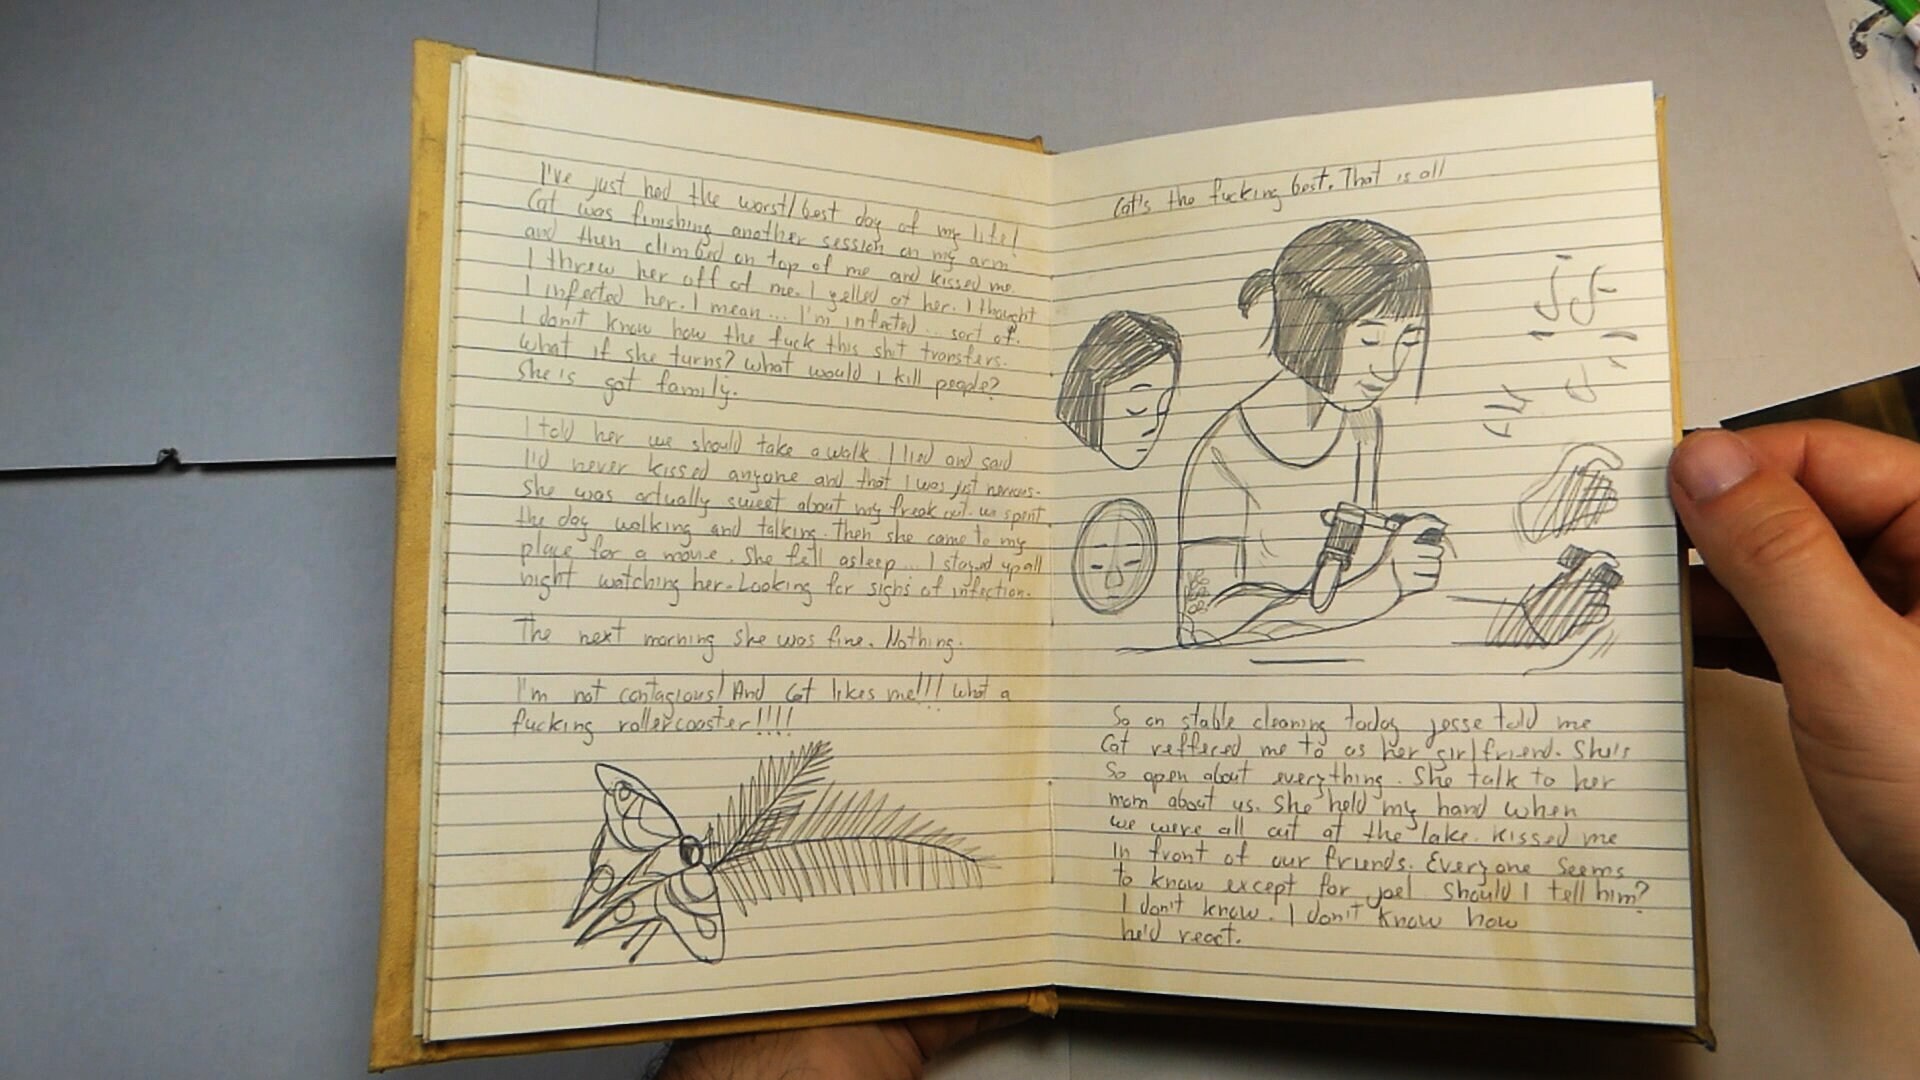 I've just had the worst/best day of my life!
Cat was finishing another session on my arm
and then climbed on top of me and kissed me.
I threw her off of me. I yelled at her. I thought
I infected her. I mean... I'm infected... sort of.
I don't know how the fuck this shit transfers.
what if she turns? What would I kill people?
She is got family.
I told her we should take a walk. I lied and said
I'd never kissed anyone and that I was just nervous.
She was actually sweet about my freak out. We spent
the day walking and talking. Then she came to my
place for a movie. She fell asleep... I stayed up all
night watching her. Looking for signs of infection.
The next morning she was fine. Nothing.
I'm not contagious! And Cat likes me!!! What a
fucking rollercoaster!!!!
Cat's the fucking best. That is all
So on stable cleaning today jesse told me
Cat reffered me to as her girlfriend. She's
So open about everything. She talk to her
mom about us. She held my hand when
we were all out at the lake. Kissed me
In front of our friends. Everyone seems
to know except for joel. Should I tell him?
I don't know. I don't know how
he'd react.